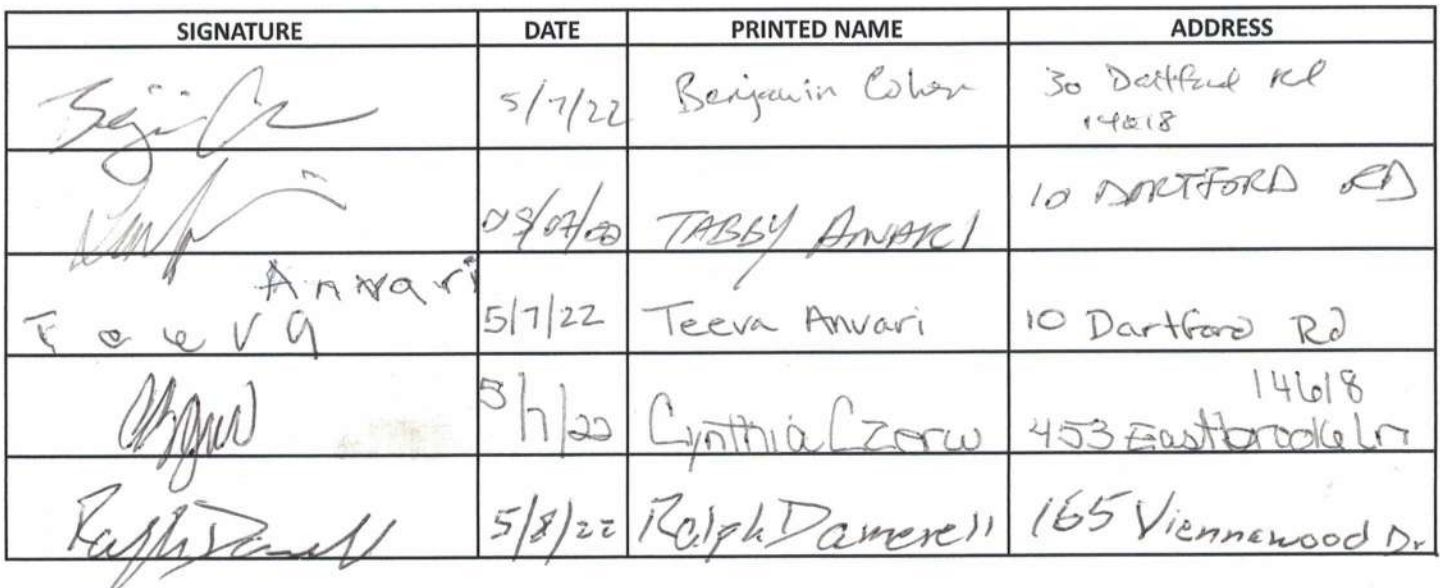 SIGNATURE DATE PRINTED NAME ADDRESS
5/7/22 Benjamin Cohen 30 Dartford Rd
14618
TABBY ANVARI 10 DARTFORD RD
Anvari
Teeva 5/7/22 Teeva Anvari 10 Dartford Rd
14618
5/7/22 Cynthia Czerw 453 Eastbrooke Ln
Ralph Damerell 5/8/22 Ralph Damerell 165 Viennawood Dr